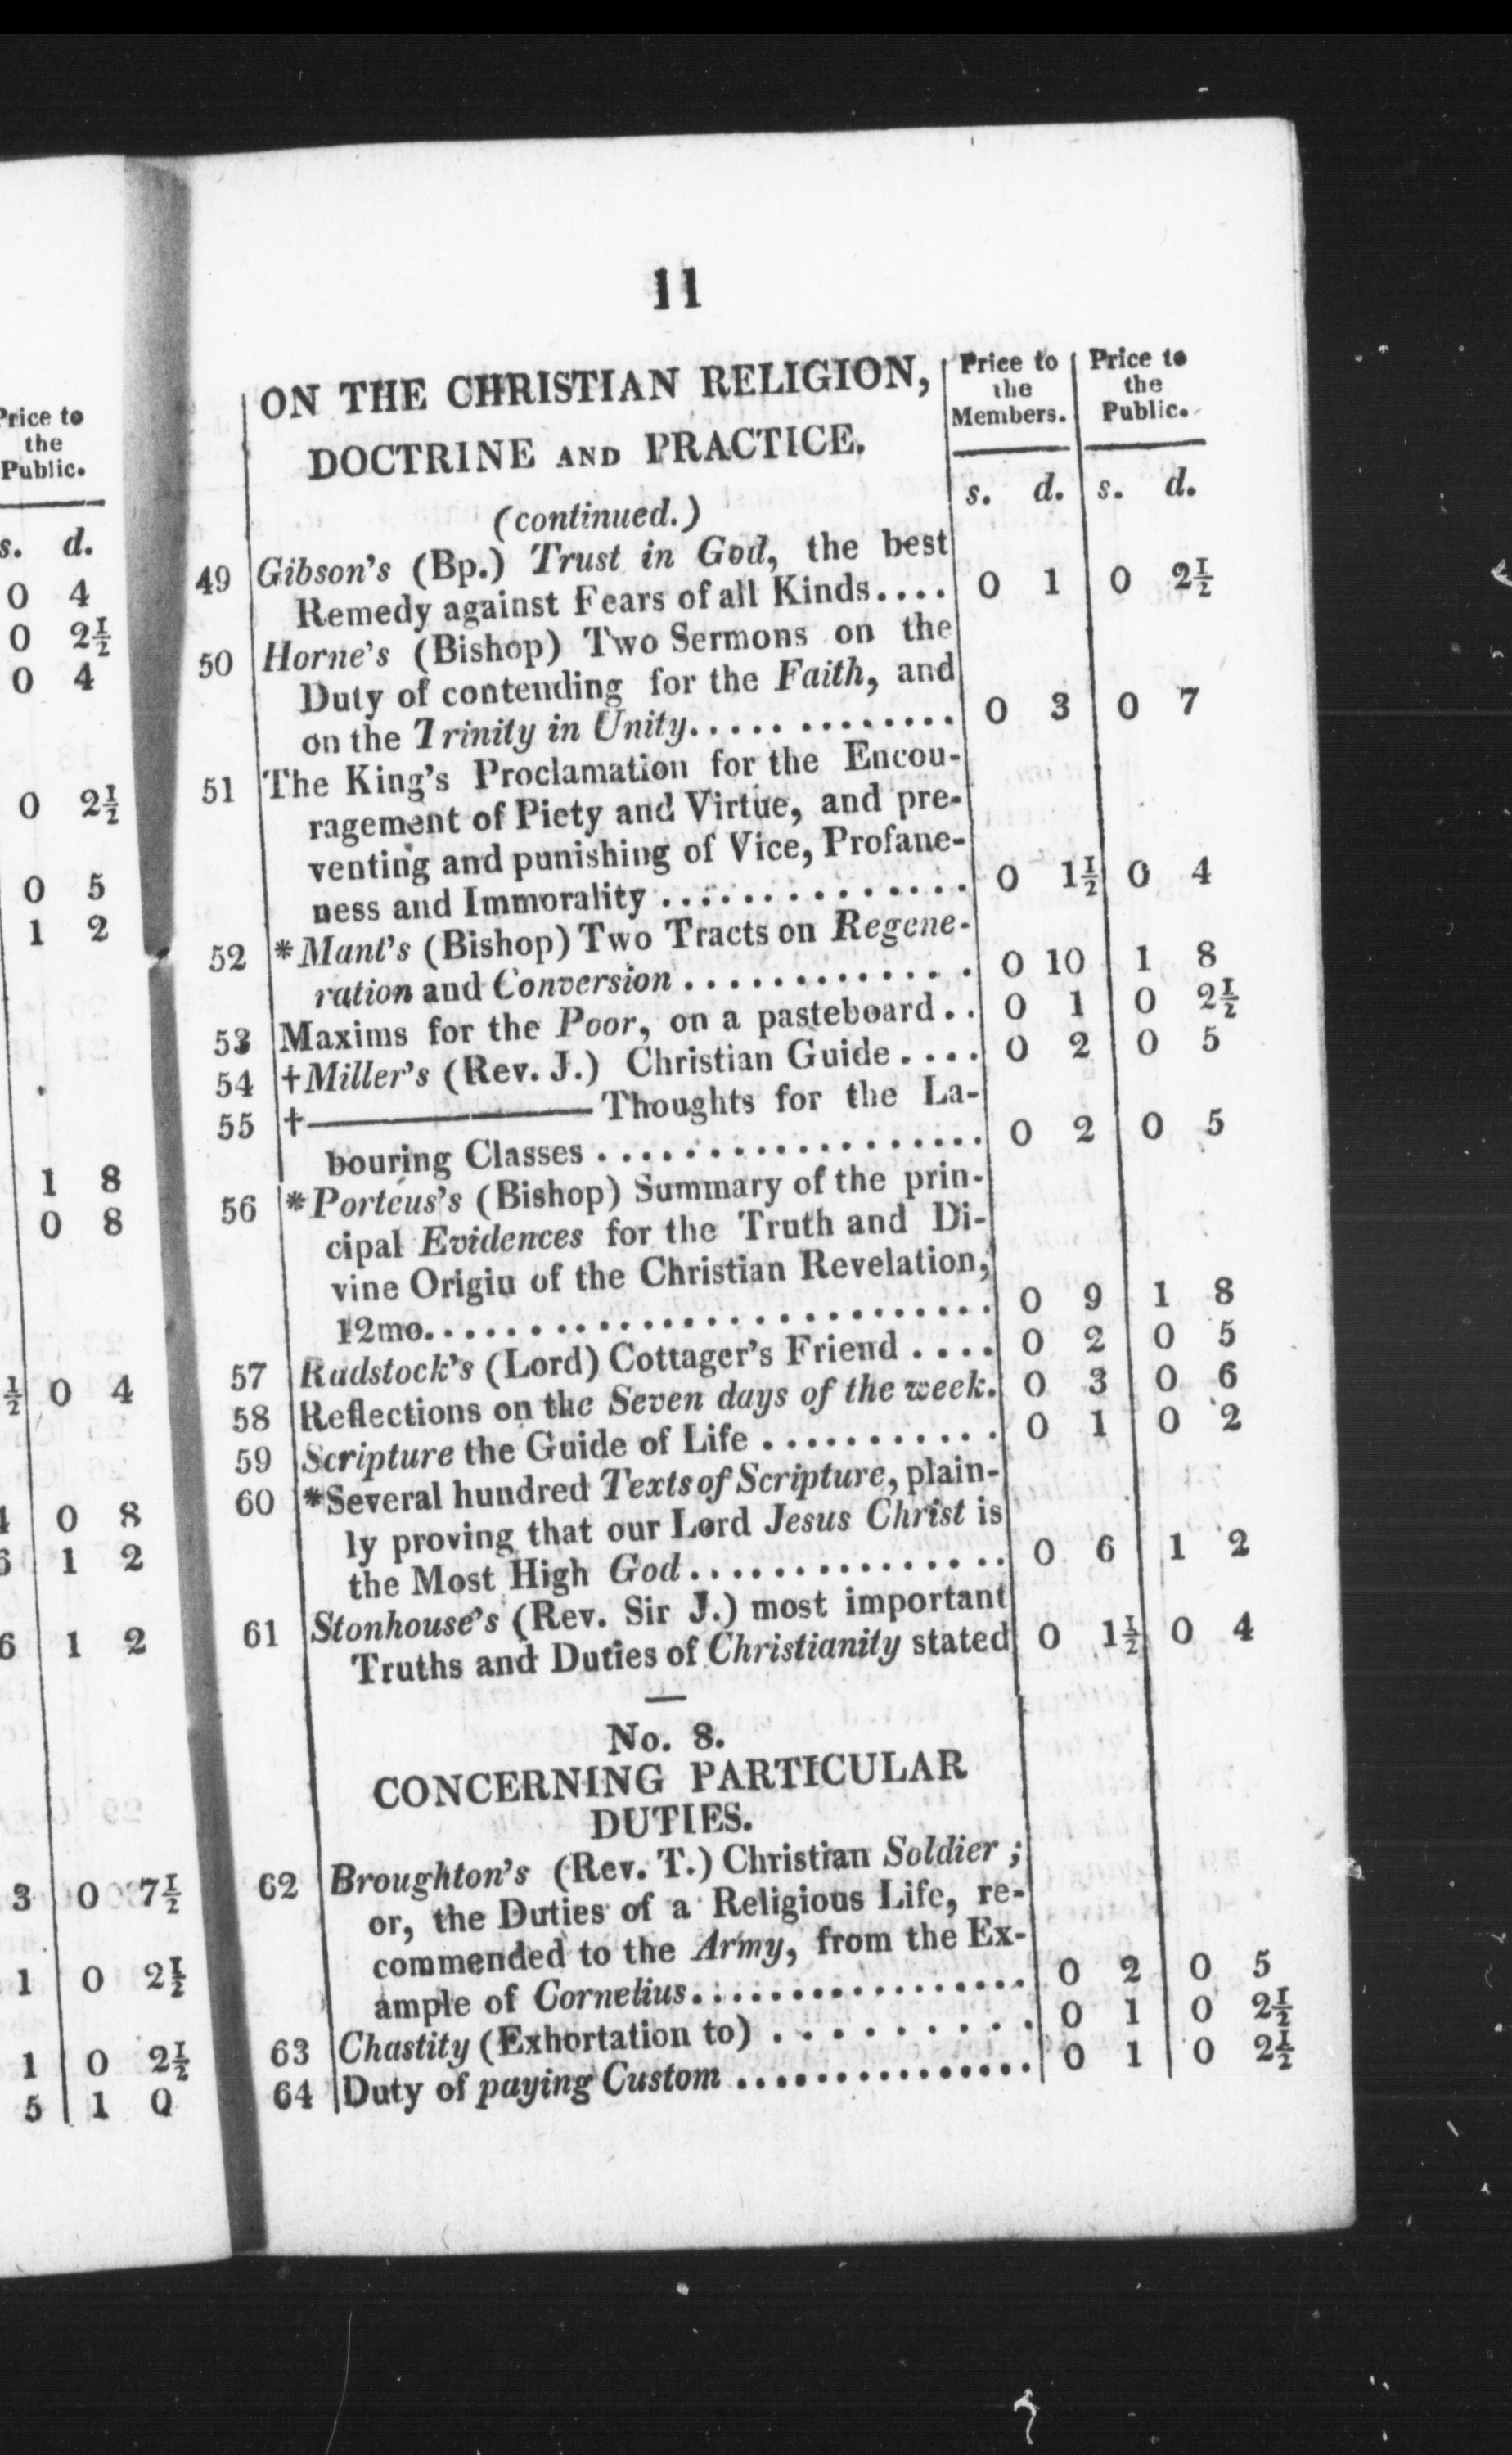 Price to
the
Public.
s. d.
0 4
0 2½
0 4
0 2½
0 5
1 2
1 8
0 8
½ 0 4
0 8
1 2
6 1 2
3 0 7½
1 0 2½
1 0 2½
5 1 0
11
ON THE CHRISTIAN RELIGION,
DOCTRINE AND PRACTICE.
(continued.)
Price to
the
Members.
Price to
the
Public.
s. d. s. d.
49 Gibson's (Bp.) Trust in God, the best
Remedy against Fears of all Kinds.... 0 1 0 2½
50 Horne's (Bishop) Two Sermons on the
Duty of contending for the Faith, and
on the Trinity in Unity............. 0 3 0 7
51 The King's Proclamation for the Encou-
ragement of Piety and Virtue, and pre-
venting and punishing of Vice, Profane-
ness and Immorality .............. 0 1½ 0 4
52 *Mant's (Bishop) Two Tracts on Regene-
ration and Conversion ............. 0 10 1 8
53 Maxims for the Poor, on a pasteboard.. 0 1 0 2½
54 †Miller's (Rev. J.) Christian Guide .... 0 2 0 5
55 †—————— Thoughts for the La-
bouring Classes ................... 0 2 0 5
56 *Porteus's (Bishop) Summary of the prin-
cipal Evidences for the Truth and Di-
vine Origin of the Christian Revelation,
12mo............................ 0 9 1 8
57 Radstock's (Lord) Cottager's Friend .... 0 2 0 5
58 Reflections on the Seven days of the week. 0 3 0 6
59 Scripture the Guide of Life ........... 0 1 0 2
60 *Several hundred Texts of Scripture, plain-
ly proving that our Lord Jesus Christ is
the Most High God............... 0 6 1 2
61 Stonhouse's (Rev. Sir J.) most important
Truths and Duties of Christianity stated 0 1½ 0 4
No. 8.
CONCERNING PARTICULAR
DUTIES.
62 Broughton's (Rev. T.) Christian Soldier ;
or, the Duties of a Religious Life, re-
commended to the Army, from the Ex-
ample of Cornelius................. 0 2 0 5
63 Chastity (Exhortation to) .......... 0 1 0 2½
64 Duty of paying Custom ............... 0 1 0 2½